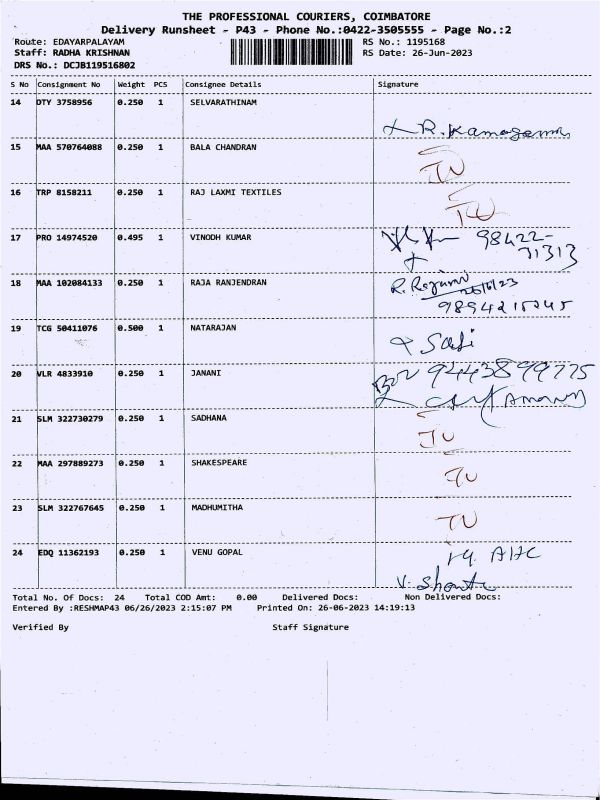 THE PROFESSIONAL COURIERS, COIMBATORE
Delivery Runsheet - P43 - Phone No.:0422-3505555 - Page No.:2
Route: EDAYARPALAYAM RS No.: 1195168
Staff: RADHA KRISHNAN RS Date: 26-Jun-2023
DRS No.: DCJB119516802
S No Consignment No Weight PCS Consignee Details Signature
14 DTY 3758956 0.250 1 SELVARATHINAM
R. Kamagamm
15 MAA 570764088 0.250 1 BALA CHANDRAN
16 TRP 8158211 0.250 1 RAJ LAXMI TEXTILES
17 PRO 14974520 0.495 1 VINODH KUMAR 98422-
71313
18 MAA 102084133 0.250 1 RAJA RANJENDRAN R. Rajami
26/6/23
19 TCG 50411076 0.500 1 NATARAJAN
20 VLR 4833910 0.250 1 JANANI 9443899775
21 SLM 322730279 0.250 1 SADHANA
22 MAA 297889273 0.250 1 SHAKESPEARE
23 SLM 322767645 0.250 1 MADHUMITHA
24 EDQ 11362193 0.250 1 VENU GOPAL
Total No. Of Docs: 24 Total COD Amt: 0.00 Delivered Docs: Non Delivered Docs:
Entered By :RESHMAP43 06/26/2023 2:15:07 PM Printed On: 26-06-2023 14:19:13
Verified By Staff Signature